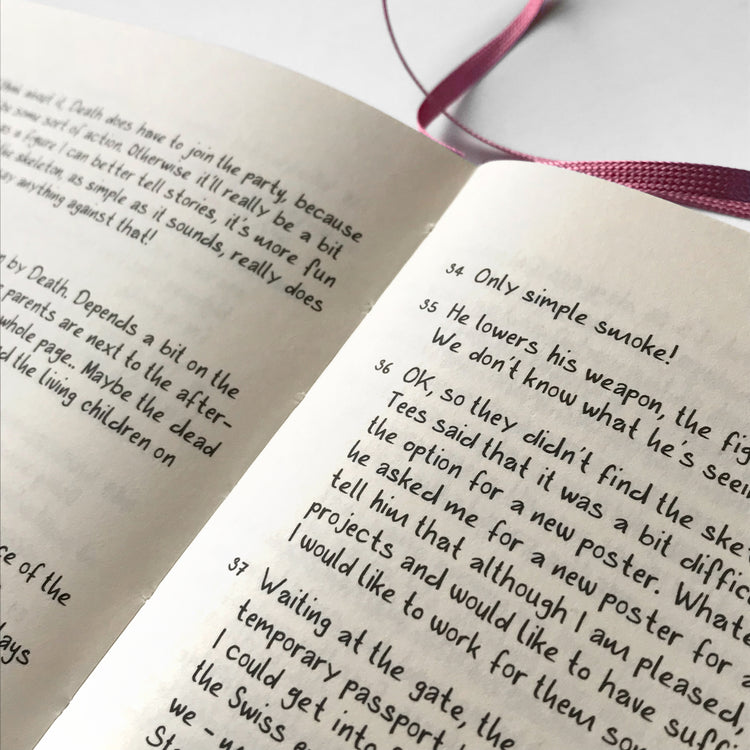 about it. Death does have to join the party, because
some sort of action. Otherwise it'll really be a bit
a figure I can better tell stories, it's more fun
skeleton, as simple as it sounds, really does
say anything against that!
by Death. Depends a bit on the
parents are next to the after-
whole page.. Maybe the dead
the living children on
of the
34 Only simple smoke!
35 He lowers his weapon, the
We don't know what he's
36 OK, so they didn't find the
Tees said that it was a bit
the option for a new poster.
he asked me for a new poster for
tell him that although I am pleased,
projects and would like to have
I would like to work for them
37 Waiting at the gate, the
temporary passport
I could get into
the Swiss
we -